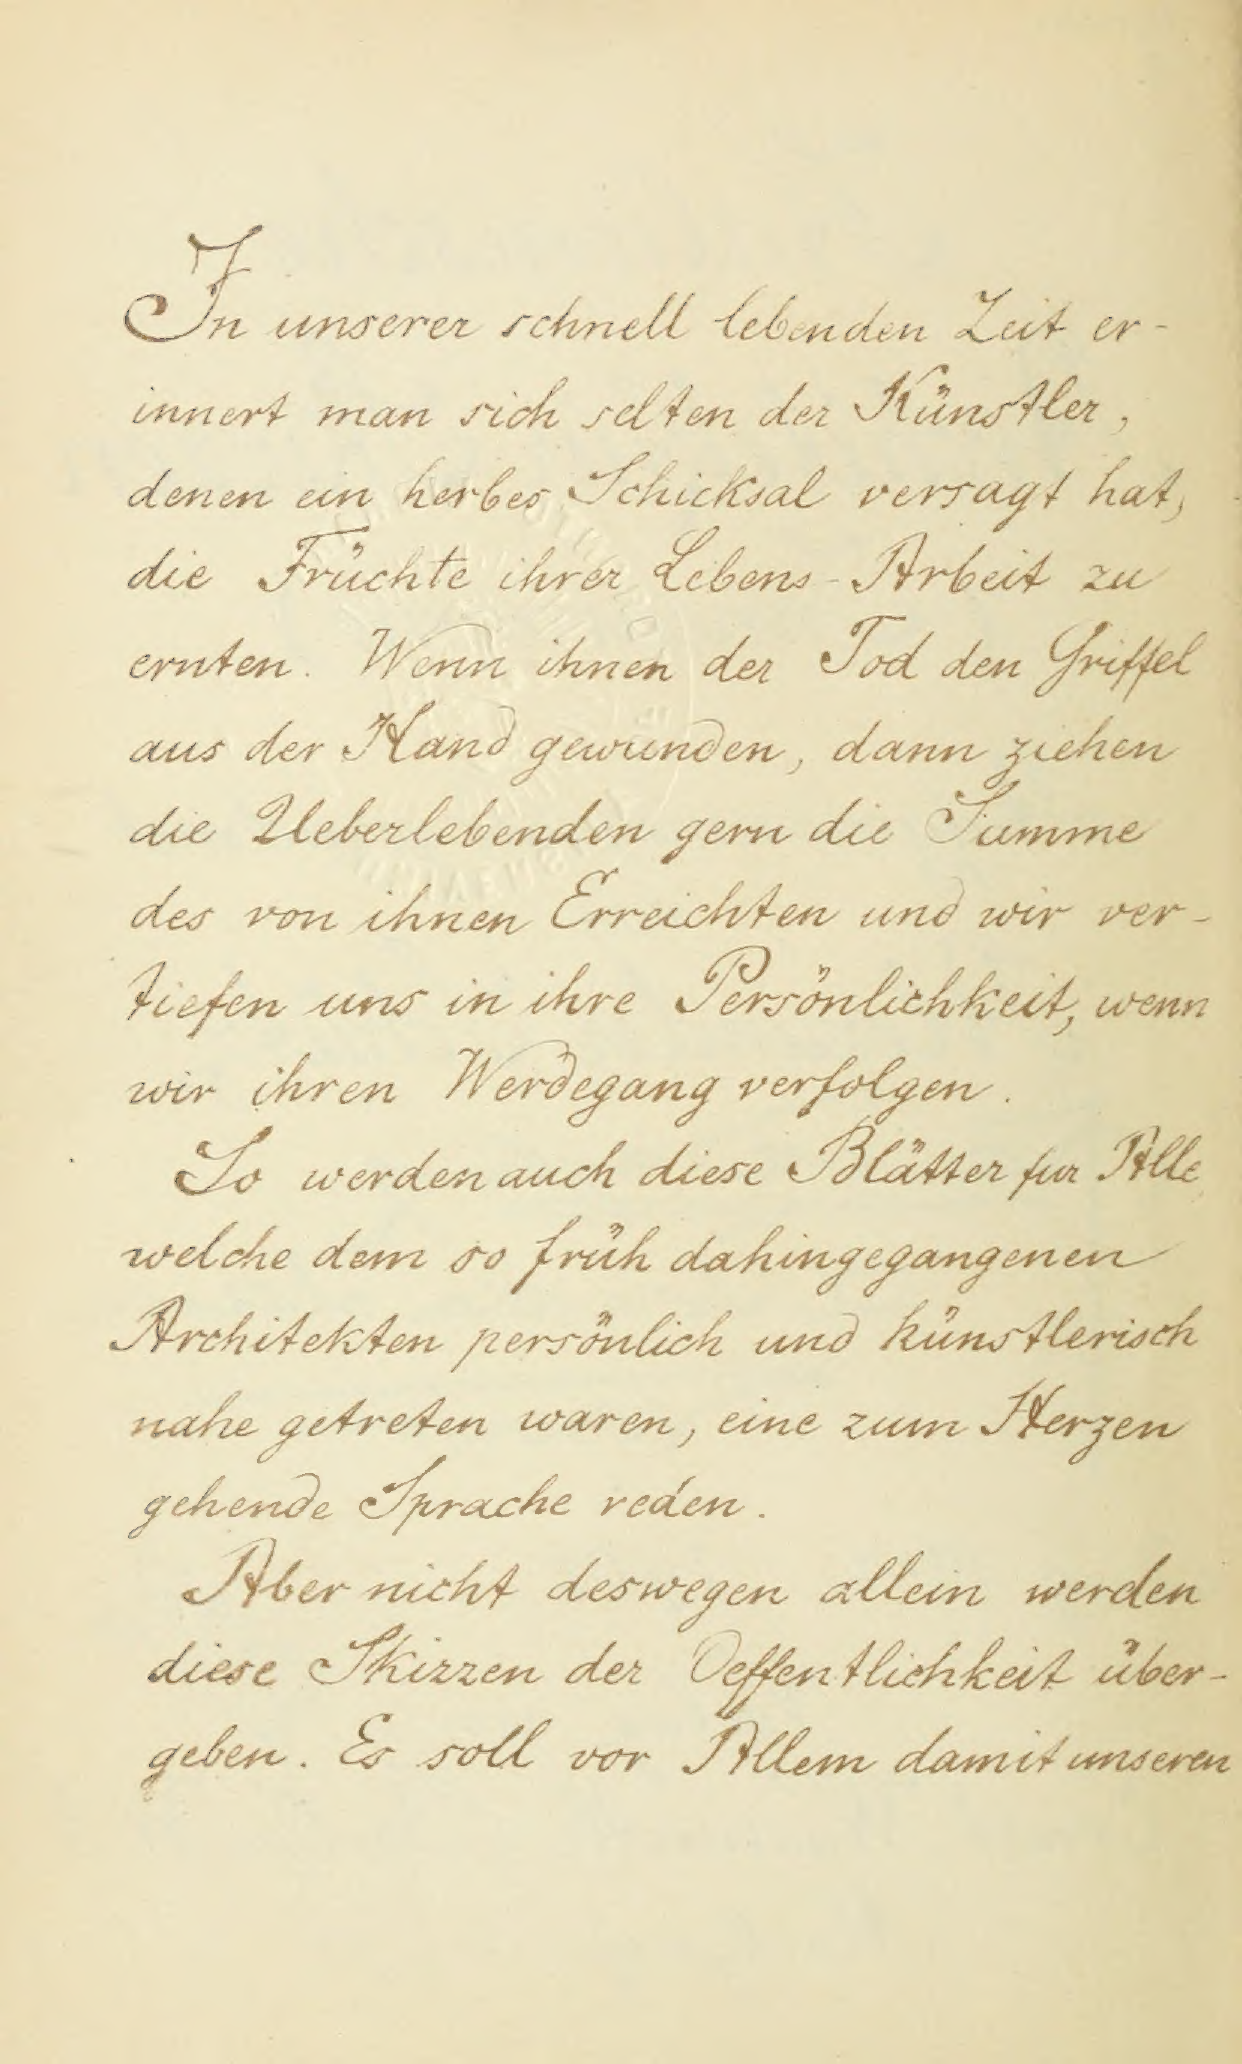 In unserer schnell lebenden Zeit er-
innert man sich selten der Künstler,
denen ein herbes Schicksal versagt hat,
die Früchte ihrer Lebens-Arbeit zu
ernten. Wenn ihnen der Tod den Griffel
aus der Hand gewunden, dann ziehen
die Ueberlebenden gern die Summe
des von ihnen Erreichten und wir ver-
tiefen uns in ihre Persönlichkeit, wenn
wir ihren Werdegang verfolgen.
So werden auch diese Blätter fur Alle
welche dem so früh dahingegangenen
Architekten persönlich und künstlerisch
nahe getreten waren, eine zum Herzen
gehende Sprache reden.
Aber nicht deswegen allein werden
diese Skizzen der Oeffentlichkeit über-
geben. Es soll vor Allem damit unseren